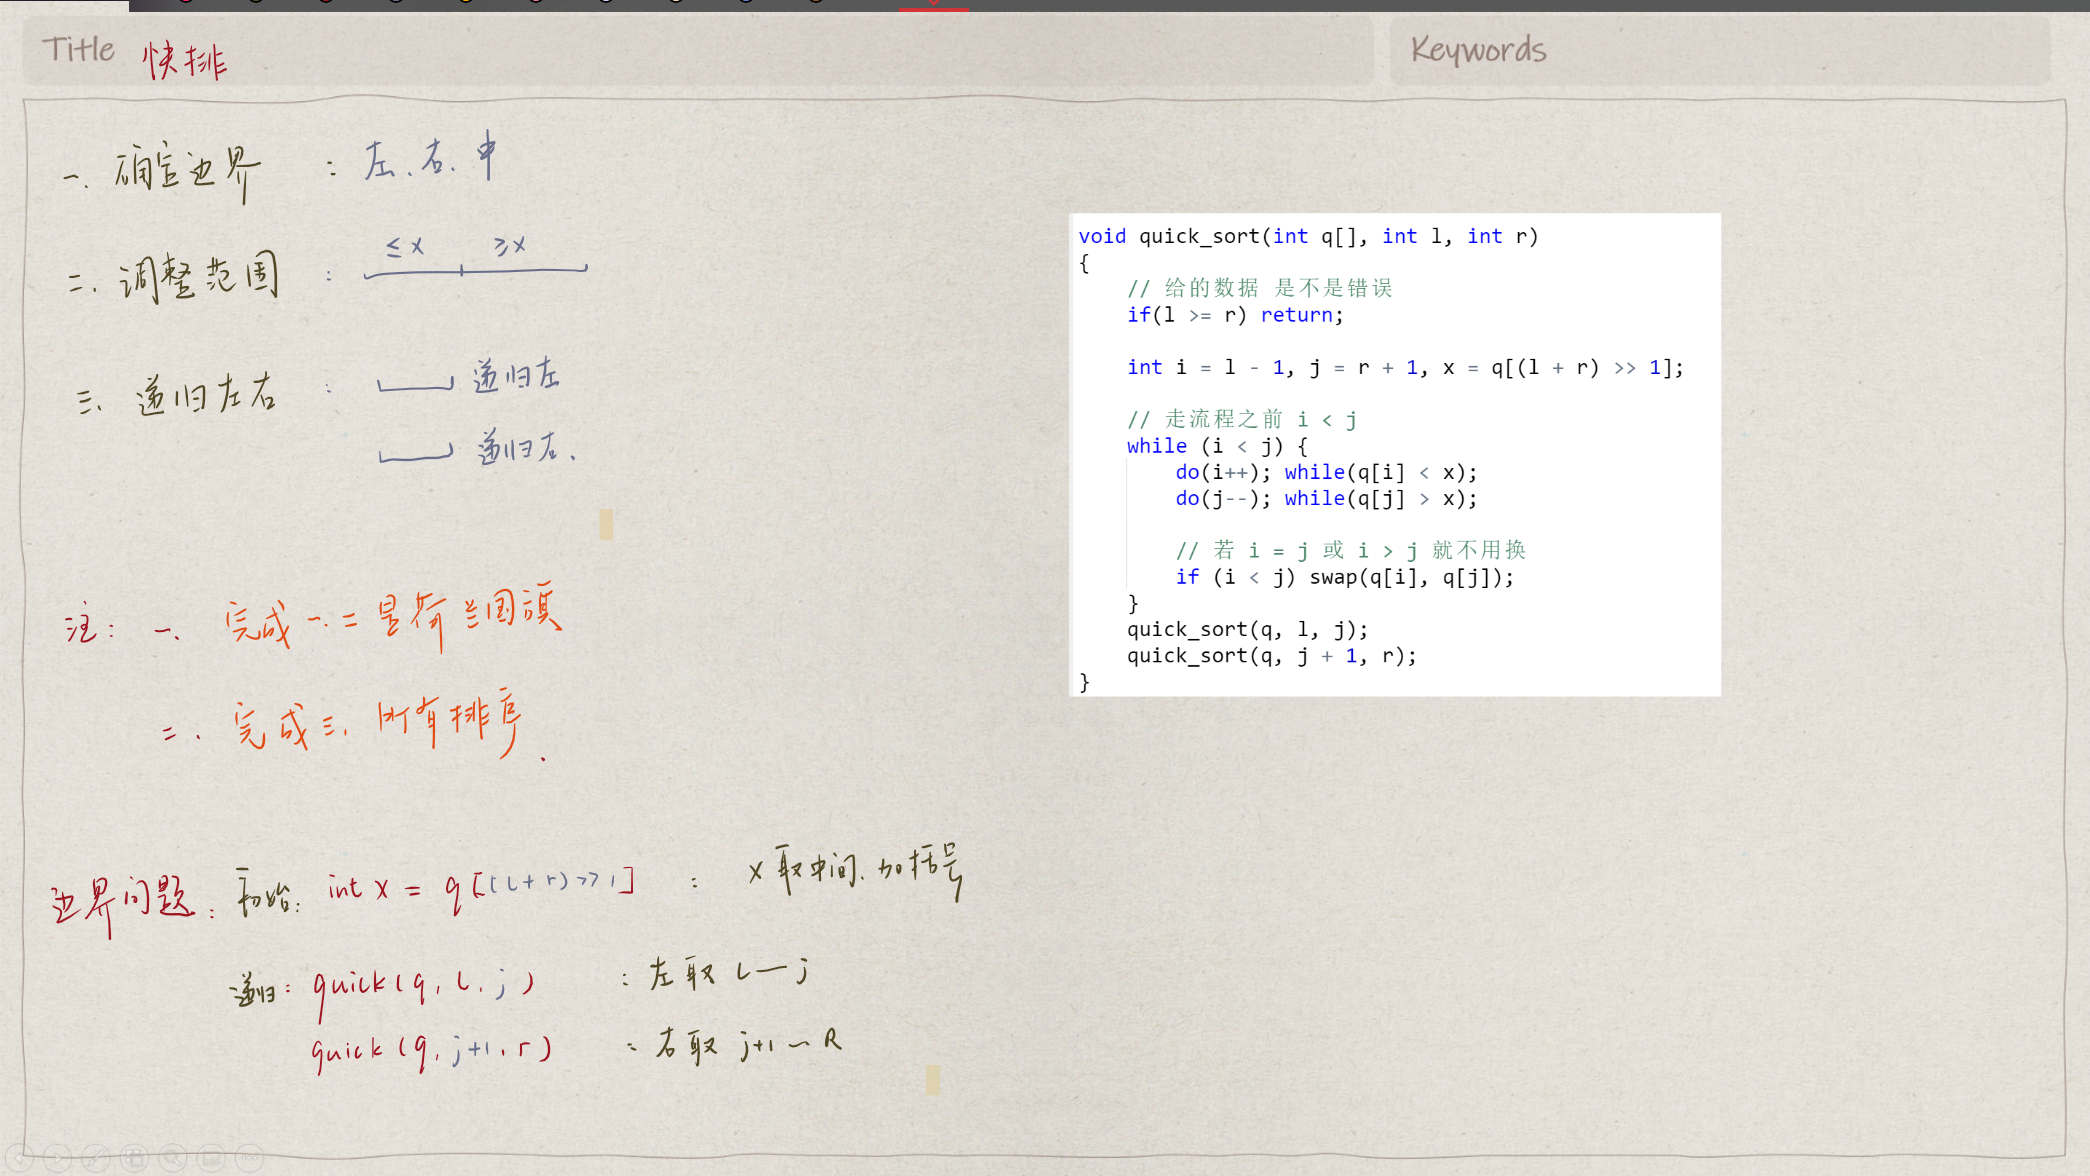 Title 快排
Keywords
一、确定边界 : 左、右、中
≤x ≥x
二、调整范围 :
三、递归左右 : 递归左
递归右.
注: 一、完成一、二是荷兰国旗
二、完成三、所有排序.
边界问题: 初始: int x = q[(l+r)>>1] : x取中间、加括号
递归: quick(q, l, j) : 左取 L—j
quick(q, j+1, r) : 右取 j+1—R
void quick_sort(int q[], int l, int r)
{
// 给的数据 是不是错误
if(l >= r) return;
int i = l - 1, j = r + 1, x = q[(l + r) >> 1];
// 走流程之前 i < j
while (i < j) {
do(i++); while(q[i] < x);
do(j--); while(q[j] > x);
// 若 i = j 或 i > j 就不用换
if (i < j) swap(q[i], q[j]);
}
quick_sort(q, l, j);
quick_sort(q, j + 1, r);
}